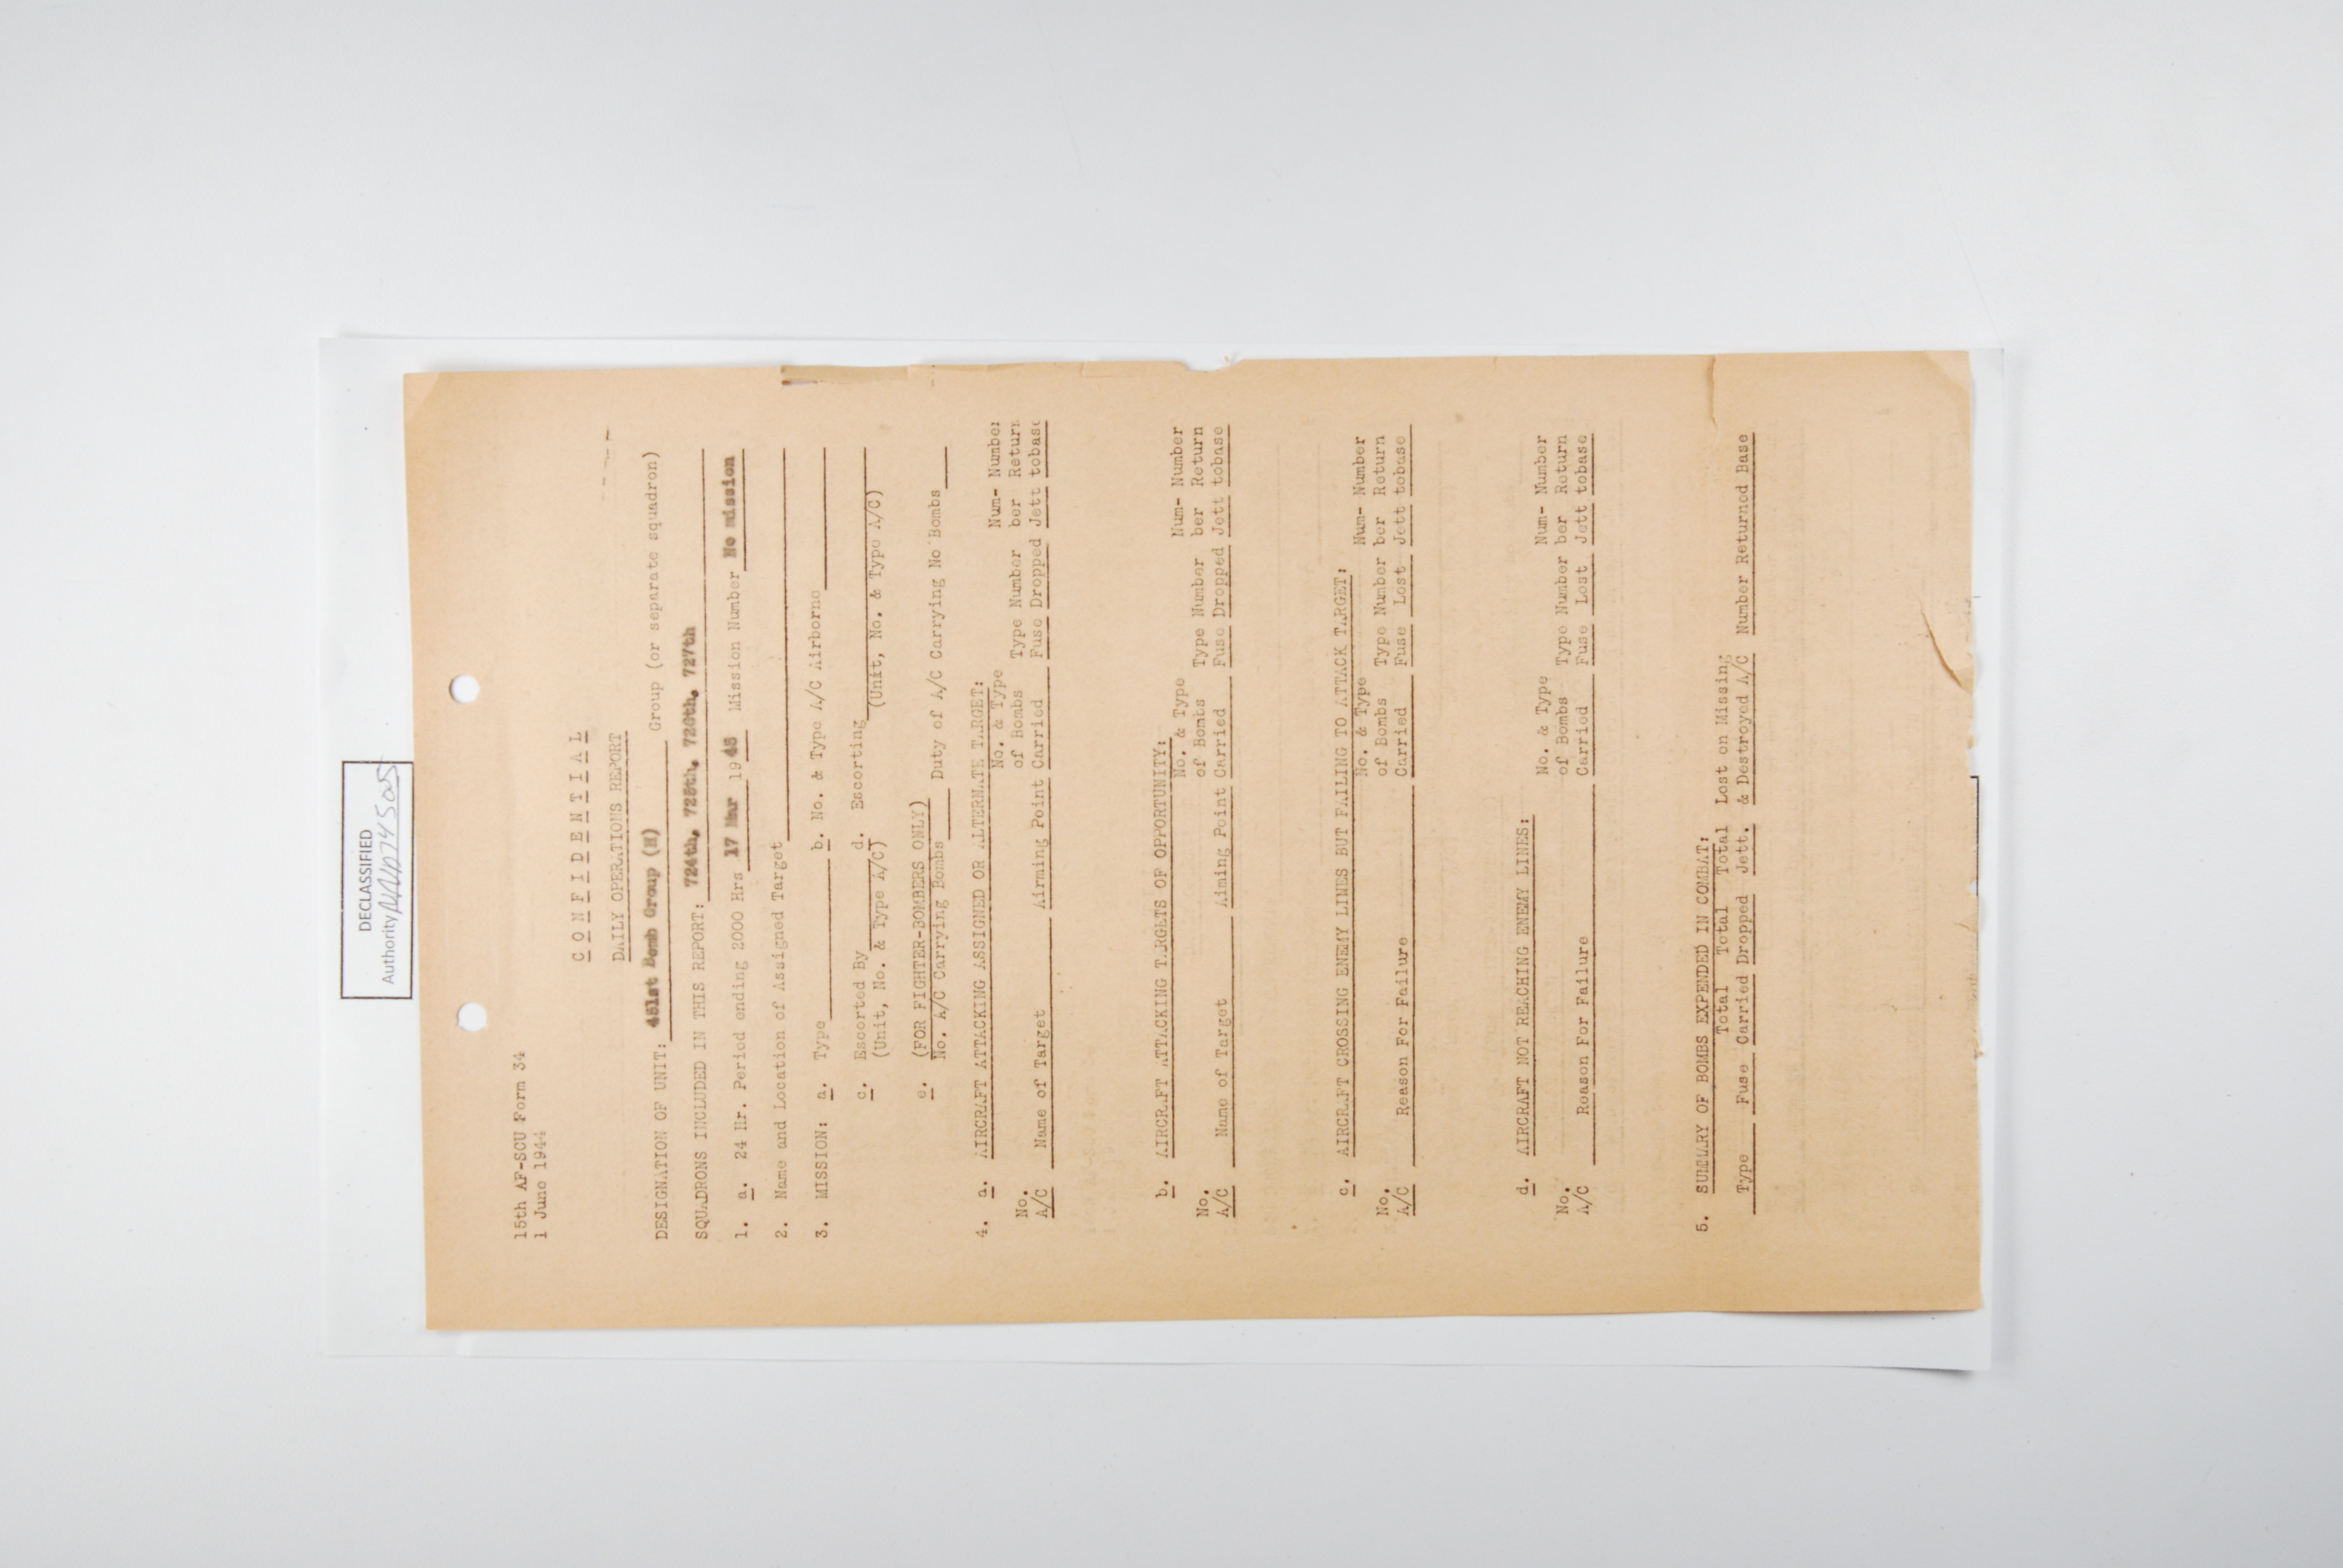 DECLASSIFIED
Authority NND745005
15th AF-SCU Form 34
1 June 1944
C O N F I D E N T I A L
DAILY OPERATIONS REPORT
DESIGNATION OF UNIT: 451st Bomb Group (H) Group (or separate squadron)
SQUADRONS INCLUDED IN THIS REPORT: 724th, 725th, 726th, 727th
1. a. 24 Hr. Period ending 2000 Hrs 17 Mar 1945 Mission Number No mission
2. Name and Location of Assigned Target
3. MISSION: a. Type b. No. & Type A/C Airborne
c. Escorted By d. Escorting
(Unit, No. & Type A/C) (Unit, No. & Type A/C)
e. (FOR FIGHTER-BOMBERS ONLY)
No. A/C Carrying Bombs Duty of A/C Carrying No Bombs
4. a. AIRCRAFT ATTACKING ASSIGNED OR ALTERNATE TARGET:
No. & Type Num- Number
No. of Bombs Type Number ber Return
A/C Name of Target Airming Point Carried Fuse Dropped Jett tobase
b. AIRCRAFT ATTACKING TARGETS OF OPPORTUNITY:
No. & Type Num- Number
No. of Bombs Type Number ber Return
A/C Name of Target Aiming Point Carried Fuse Dropped Jett tobase
c. AIRCRAFT CROSSING ENEMY LINES BUT FAILING TO ATTACK TARGET:
No. & Type Num- Number
No. of Bombs Type Number ber Return
A/C Reason For Failure Carried Fuse Lost Jett tobase
d. AIRCRAFT NOT REACHING ENEMY LINES:
No. & Type Num- Number
No. of Bombs Type Number ber Return
A/C Reason For Failure Carried Fuse Lost Jett tobase
5. SUMMARY OF BOMBS EXPENDED IN COMBAT:
Total Total Total Lost on Missing
Type Fuse Carried Dropped Jett. & Destroyed A/C Number Returned Base